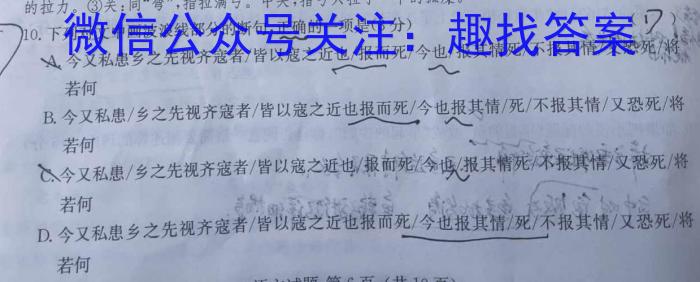 的拉力。③关:同“弯”,指拉满弓。中关,指弓只拉了一半的强度。
微信公众号关注:趣找答案
10.下列对文中画波浪线部分的断句,正确的一项是(3分)
A.今又私患/乡之先视齐寇者/皆以寇之近也/报而死/今也/报其情死/不报其情/又恐死/将
若何
B.今又私患/乡之先视齐寇者/皆以寇之近也报而死/今也报其情/死/不报其情/又恐死/将
若何
C.今又私患/乡之先视齐寇者/皆以寇之近也/报而死/今也/报其情死/不报其情/又恐死/将
若何
D.今又私患乡之先视齐寇者/皆以寇之近也报而死/今也报其情/死/不报其情/又恐死/将
若何